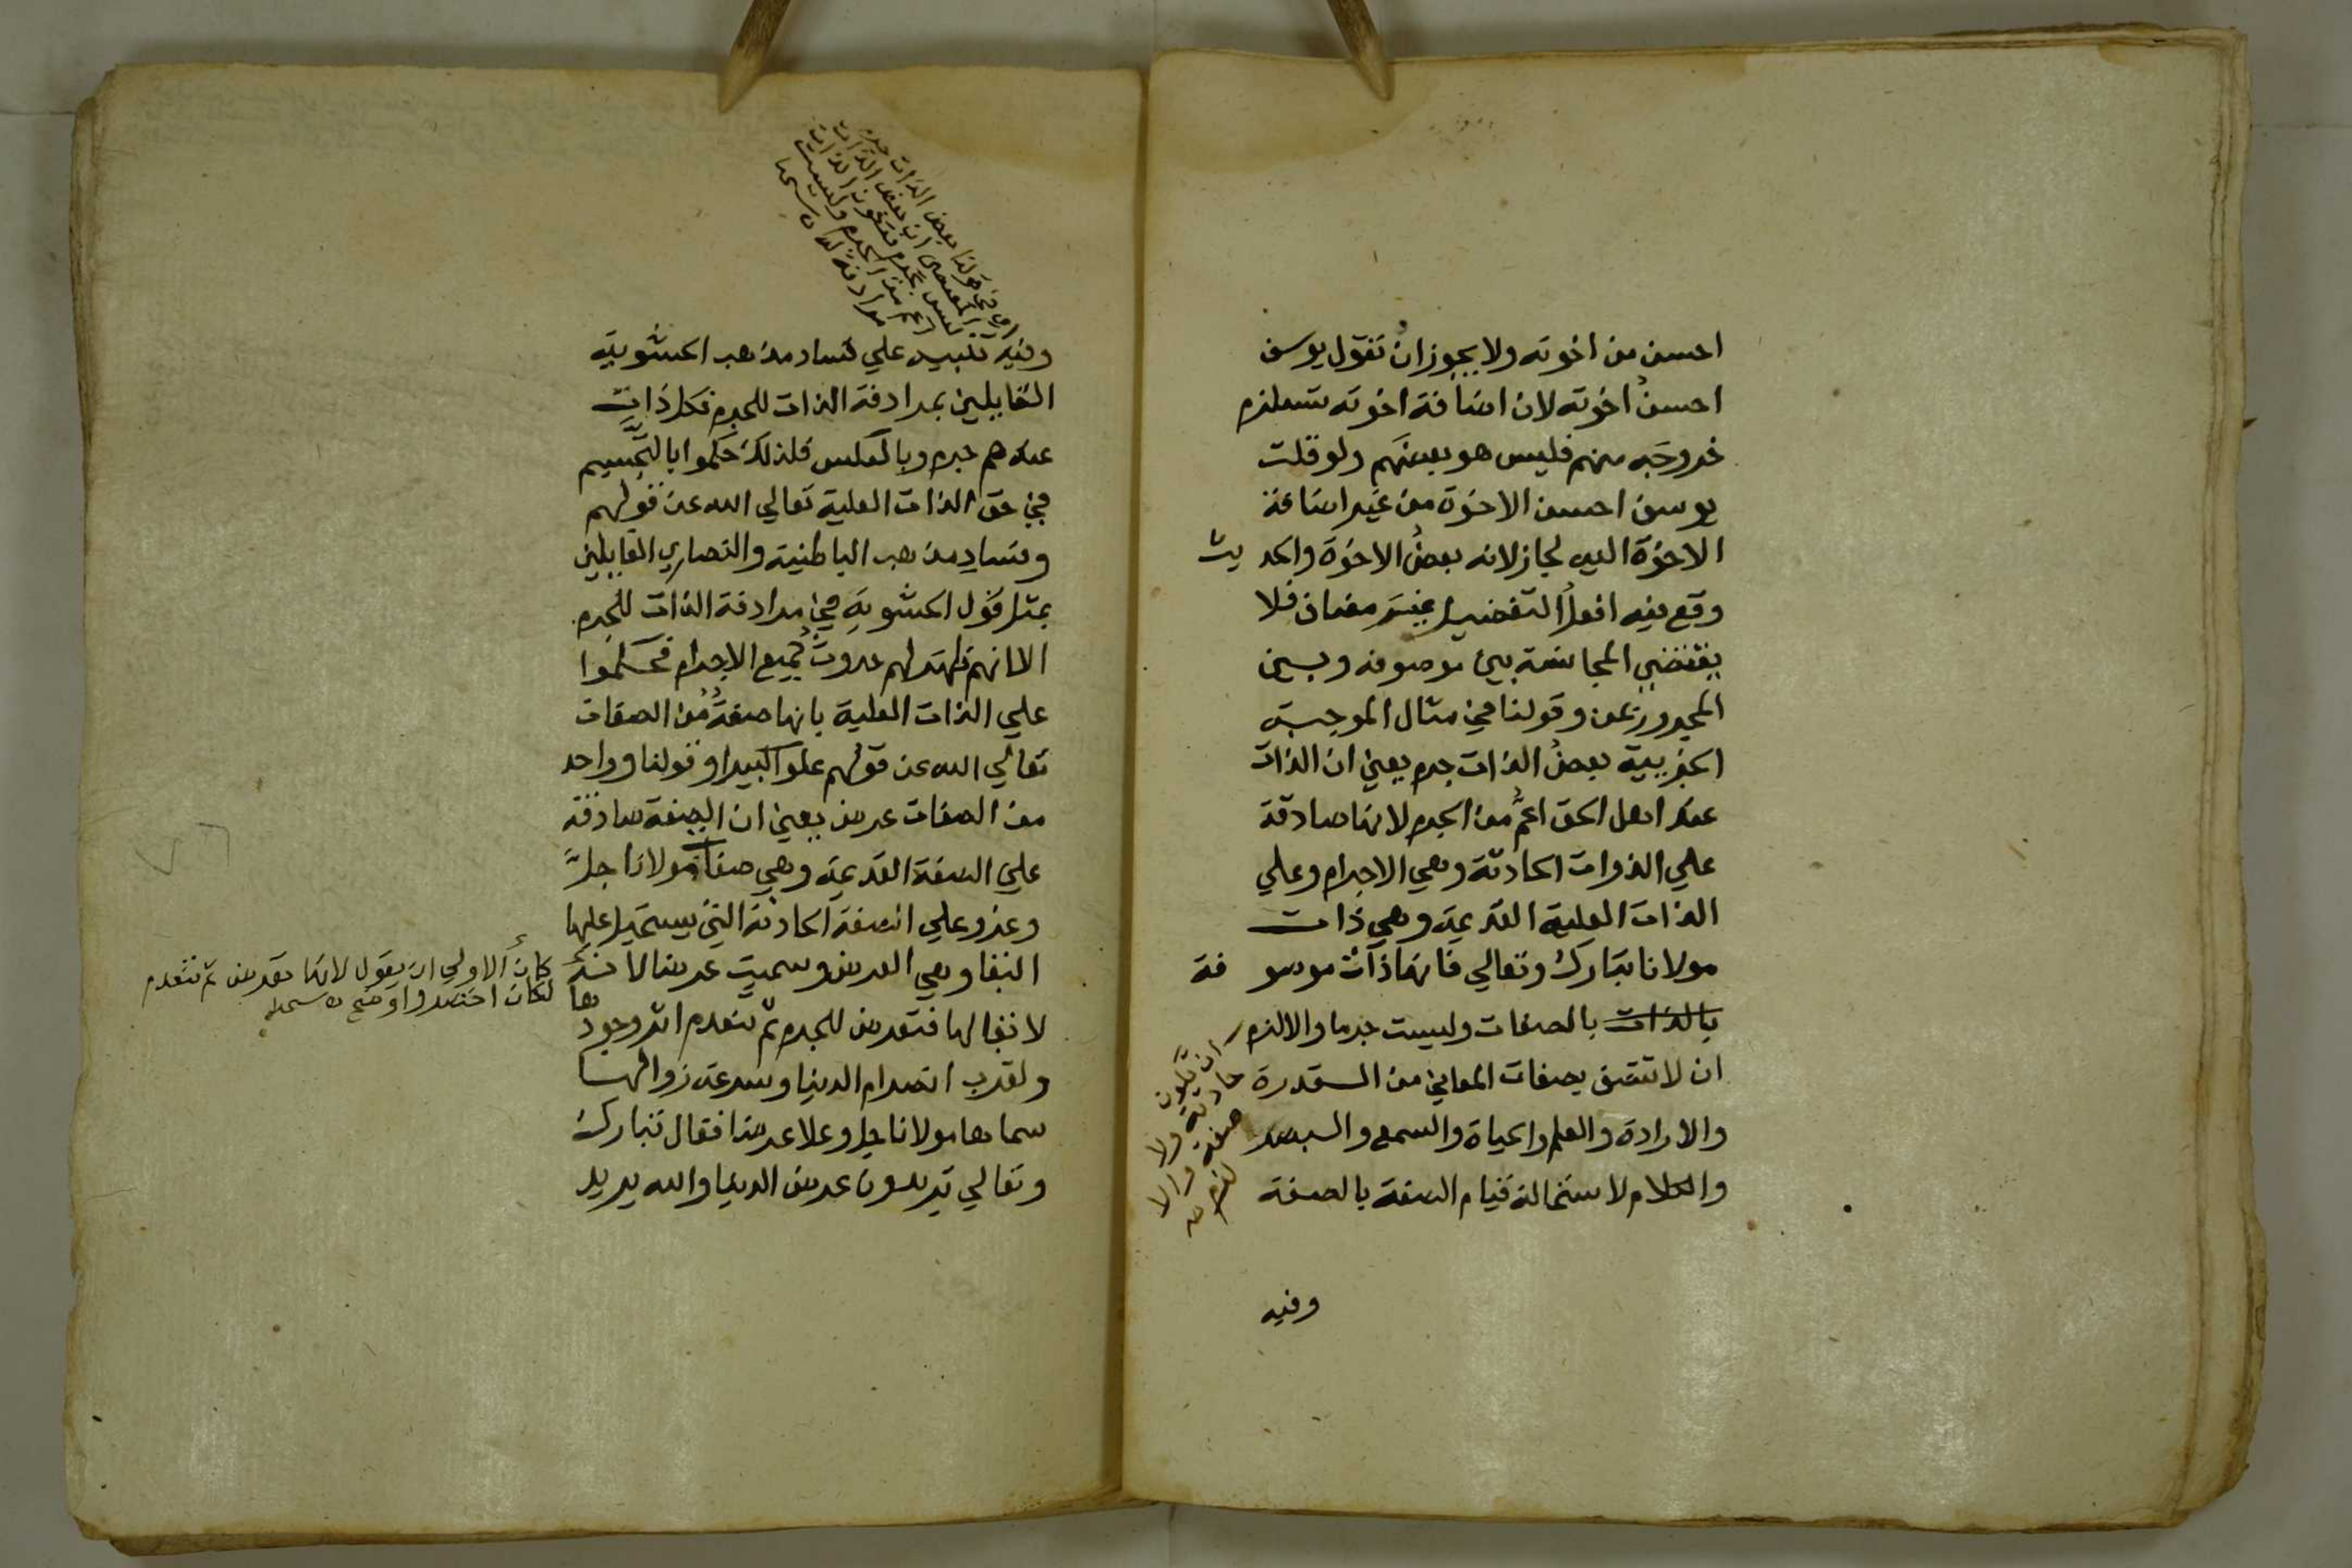 احسن من اخوته ولا يجوز ان تقول يوسف
احسن اخوته لان اضافة اخوته تستلزم
خروجه منهم فليس هو بعضهم ولو قلت
يوسف احسن الاخوة من غير اضافة
الاخوة اليه لجاز لانه بعض الاخوة والحديث
وقع فيه افعل التفضيل غير مضاف فلا
يقتضي المجانسة بين موصوفه وبين
المجرور بمن وقولنا في مثال الموجبة
الجزيية بعض الذات جرم يعني ان الذات
عند اهل الحق اعم من الجرم لانها صادقة
علي الذوات الحادثة وهي الاجرام وعلي
الذات العلية القديمة وهي ذات
مولانا تبارك وتعالي فانها ذات موصوفة
بالذات بالصفات وليست جرما والا لزم
ان لا تتصف بصفات المعاني من القدرة
والارادة والعلم والحياة والسمع والبصر
والكلام لاستحالة قيام الصفة بالصفة
ان تكون
حادثة ولا
صفة والا
لزم
وفيه
اي في قولنا بعض الذات جرم
وفيه تنبيه علي فساد مذهب الحشوية
القايلين بمرادفة الذات للجرم فكل ذات
عندهم جرم وبالعكس فلذلك حكموا بالتجسيم
في حق الذات العلية تعالي الله عن قولهم
وفساد مذهب الباطنية والنصاري القايلين
بمثل قول الحشوية في مرادفة الذات للجرم
الا انهم ظهر لهم حدوث جميع الاجرام فحكموا
علي الذات العلية بانها صفة من الصفات
تعالي الله عن قولهم علوا كبيرا وقولنا وواحد
من الصفات عرض يعني ان الصفة صادقة
علي الصفة القديمة وهي صفات مولانا جل
وعز وعلي الصفة الحادثة التي يستحيل عليها
البقا وهي العرض وسميت عرضا لانه
لا بقا لها فتعرض للجرم ثم تنعدم اثر وجودها
ولقرب انصرام الدنيا وسرعة زوالها
سماها مولانا جل وعلا عرضا فقال تبارك
وتعالي تريدون عرض الدنيا والله يريد
كان الاولي ان يقول لانها تعرض ثم تنعدم
لكان اخصر واوضح